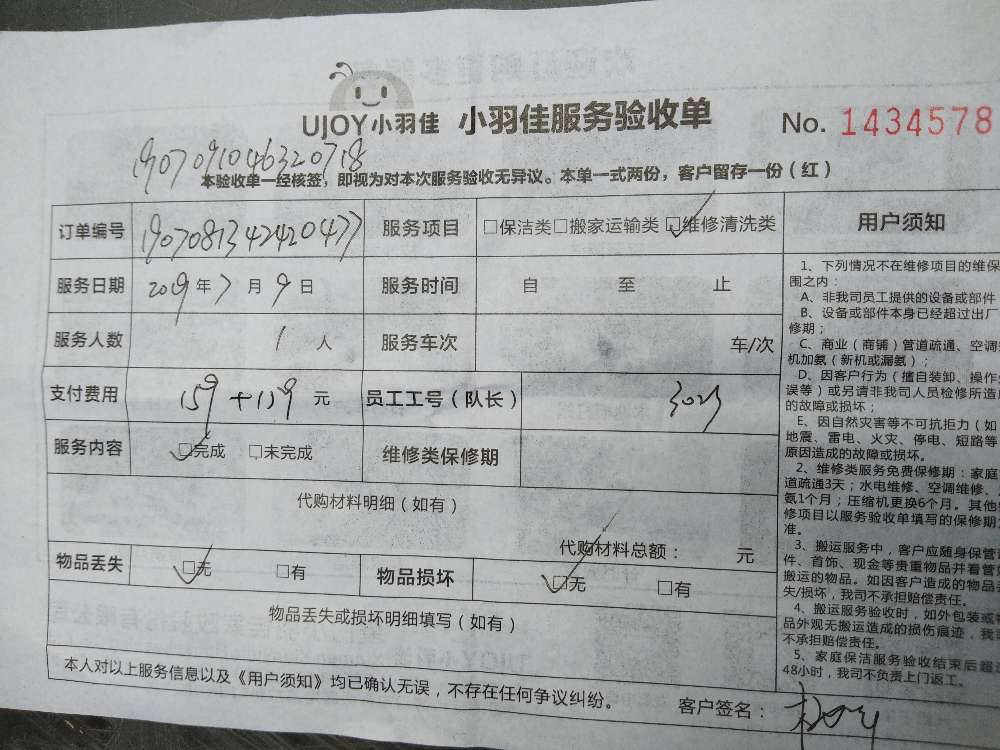 UJOY小羽佳 小羽佳服务验收单 No. 1434578
1907091046320718
本验收单一经核签，即视为对本次服务验收无异议。本单一式两份，客户留存一份（红）
订单编号 19070813424204 77 服务项目 □保洁类□搬家运输类 ☑维修清洗类
服务日期 2019年7月9日 服务时间 自 至 止
服务人数 1 人 服务车次 车/次
支付费用 159+159 元 员工工号（队长）
服务内容 ☑完成 □未完成 维修类保修期
代购材料明细（如有）
代购材料总额： 元
物品丢失 ☑无 □有 物品损坏 ☑无 □有
物品丢失或损坏明细填写（如有）
本人对以上服务信息以及《用户须知》均已确认无误，不存在任何争议纠纷。
客户签名：
用户须知
1、下列情况不在维修项目的维保
围之内：
A、非我司员工提供的设备或部件
B、设备或部件本身已经超过出厂
修期；
C、商业（商铺）管道疏通、空调
机加氨（新机或漏氨）；
D、因客户行为（擅自装卸、操作
误等）或另请非我司人员检修所造
的故障或损坏；
E、因自然灾害等不可抗拒力（如
地震、雷电、火灾、停电、短路等
原因造成的故障或损坏。
2、维修类服务免费保修期：家庭
道疏通3天；水电维修、空调维修、
氨1个月；压缩机更换6个月。其他
修项目以服务验收单填写的保修期
准。
3、搬运服务中，客户应随身保管
件、首饰、现金等贵重物品并看管
搬运的物品。如因客户造成的物品
失/损坏，我司不承担赔偿责任。
4、搬运服务验收时，如外包装或
品外观无搬运造成的损伤痕迹，我
不承担赔偿责任。
5、家庭保洁服务验收结束后超
48小时，我司不负责上门返工。